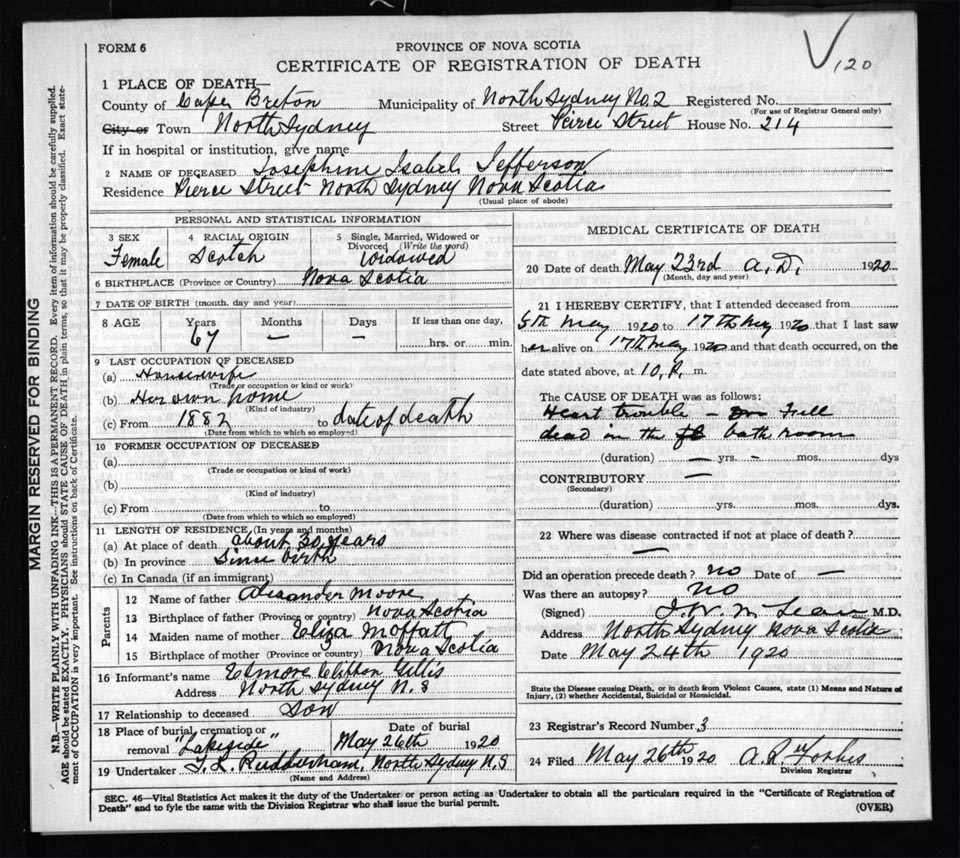 FORM 6
PROVINCE OF NOVA SCOTIA
CERTIFICATE OF REGISTRATION OF DEATH
120
1 PLACE OF DEATH—
County of Cape Breton Municipality of North Sydney No. 2 Registered No.
(For use of Registrar General only)
City or Town North Sydney Street Peirce Street House No. 214
If in hospital or institution, give name
2 NAME OF DECEASED Josephine Isabel Jefferson
Residence Pierce Street North Sydney Nova Scotia
(Usual place of abode)
PERSONAL AND STATISTICAL INFORMATION
3 SEX 4 RACIAL ORIGIN 5 Single, Married, Widowed or Divorced (Write the word)
Female Scotch Widowed
6 BIRTHPLACE (Province or Country) Nova Scotia
7 DATE OF BIRTH (month, day and year)
8 AGE Years Months Days If less than one day,
67 — — hrs. or min.
9 LAST OCCUPATION OF DECEASED
(a) Housewife
(Trade or occupation or kind or work)
(b) Her own home
(Kind of industry)
(c) From 1882 to date of death
(Date from which to which so employed)
10 FORMER OCCUPATION OF DECEASED
(a)
(Trade or occupation or kind of work)
(b)
(Kind of industry)
(c) From to
(Date from which to which so employed)
11 LENGTH OF RESIDENCE (In years and months)
(a) At place of death about 30 years
(b) In province Since birth
(c) In Canada (if an immigrant)
Parents
12 Name of father Alexander Moore
13 Birthplace of father (Province or country) Nova Scotia
14 Maiden name of mother Eliza Moffatt
15 Birthplace of mother (Province or country) Nova Scotia
16 Informant's name Elmore Clifton Gillis
Address North Sydney N.S
17 Relationship to deceased Son
18 Place of burial, cremation or removal Date of burial
"Lakeside" May 26th 1920
19 Undertaker Rudderham, North Sydney N.S
(Name and Address)
MEDICAL CERTIFICATE OF DEATH
20 Date of death May 23rd A.D. 1920
(Month, day and year)
21 I HEREBY CERTIFY, that I attended deceased from
5th May 1920 to 17th May 1920 that I last saw
her alive on 17th May 1920 and that death occurred, on the
date stated above, at 10, P. m.
The CAUSE OF DEATH was as follows:
Heart trouble — Fell
dead in the bath room
(duration) — yrs. - mos. dys
CONTRIBUTORY —
(Secondary)
(duration) yrs. mos. dys.
22 Where was disease contracted if not at place of death?
—
Did an operation precede death? no Date of —
Was there an autopsy? no
(Signed) M.D.
Address North Sydney Nova Scotia
Date May 24th 1920
State the Disease causing Death, or in death from Violent Causes, state (1) Means and Nature of
Injury, (2) whether Accidental, Suicidal or Homicidal.
23 Registrar's Record Number 3
24 Filed May 26th 1920 Forbes
Division Registrar
SEC. 46—Vital Statistics Act makes it the duty of the Undertaker or person acting as Undertaker to obtain all the particulars required in the "Certificate of Registration of
Death" and to fyle the same with the Division Registrar who shall issue the burial permit.
(OVER)
MARGIN RESERVED FOR BINDING
N.B.—WRITE PLAINLY WITH UNFADING INK—THIS IS A PERMANENT RECORD. Every item of information should be carefully supplied.
AGE should be stated EXACTLY. PHYSICIANS should STATE CAUSE OF DEATH in plain terms, so that it may be properly classified. Exact state-
ment of OCCUPATION is very important. See instructions on back of Certificate.